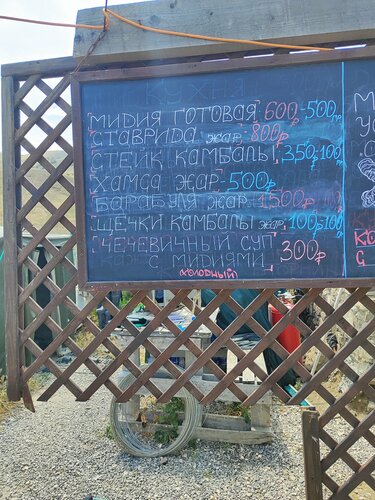 КУХНЯ
МИДИЯ ГОТОВАЯ 600р-500гр
СТАВРИДА жар. 800р
СТЕЙК КАМБАЛЫ 350р100
ХАМСА ЖАР. 500р
БАРАБУЛЯ ЖАР. 1500р
ЩЁЧКИ КАМБАЛЫ жар. 100р100
ЧЕЧЕВИЧНЫЙ СУП
С МИДИЯМИ 300р
ХОЛОДНЫЙ